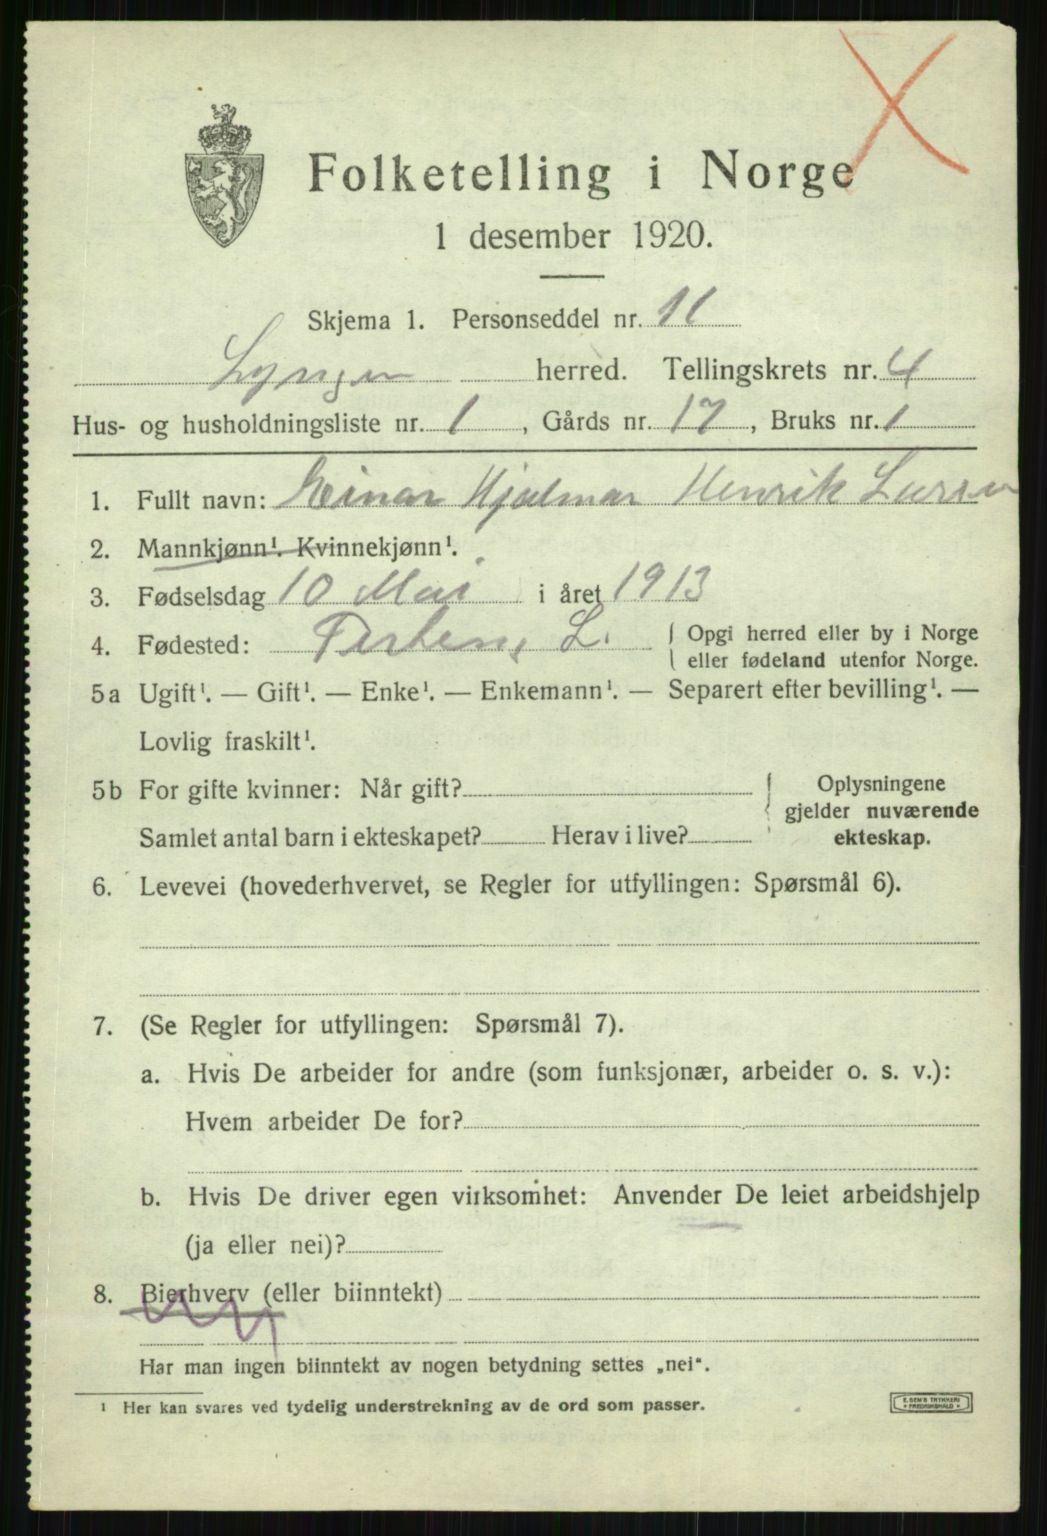 Folketelling i Norge
1 desember 1920.
Skjema 1. Personseddel nr. 11
Lyngen herred. Tellingskrets nr. 4
Hus- og husholdningsliste nr. 1, Gårds nr. 17, Bruks nr. 1
1. Fullt navn: Einar Hjalmar Henrik Larsen
2. Mannkjønn¹. Kvinnekjønn¹.
3. Fødselsdag 10 Mai i året 1913
4. Fødested: L. { Opgi herred eller by i Norge
eller fødeland utenfor Norge.
5a Ugift¹. — Gift¹. — Enke¹. — Enkemann¹. — Separert efter bevilling¹. —
Lovlig fraskilt¹.
5b For gifte kvinner: Når gift? { Oplysningene
gjelder nuværende
Samlet antal barn i ekteskapet? Herav i live? ekteskap.
6. Levevei (hovederhvervet, se Regler for utfyllingen: Spørsmål 6).
7. (Se Regler for utfyllingen: Spørsmål 7).
a. Hvis De arbeider for andre (som funksjonær, arbeider o. s. v.):
Hvem arbeider De for?
b. Hvis De driver egen virksomhet: Anvender De leiet arbeidshjelp
(ja eller nei)?
8. Bierhverv (eller biinntekt)
Har man ingen biinntekt av nogen betydning settes „nei“.
¹ Her kan svares ved tydelig understrekning av de ord som passer.